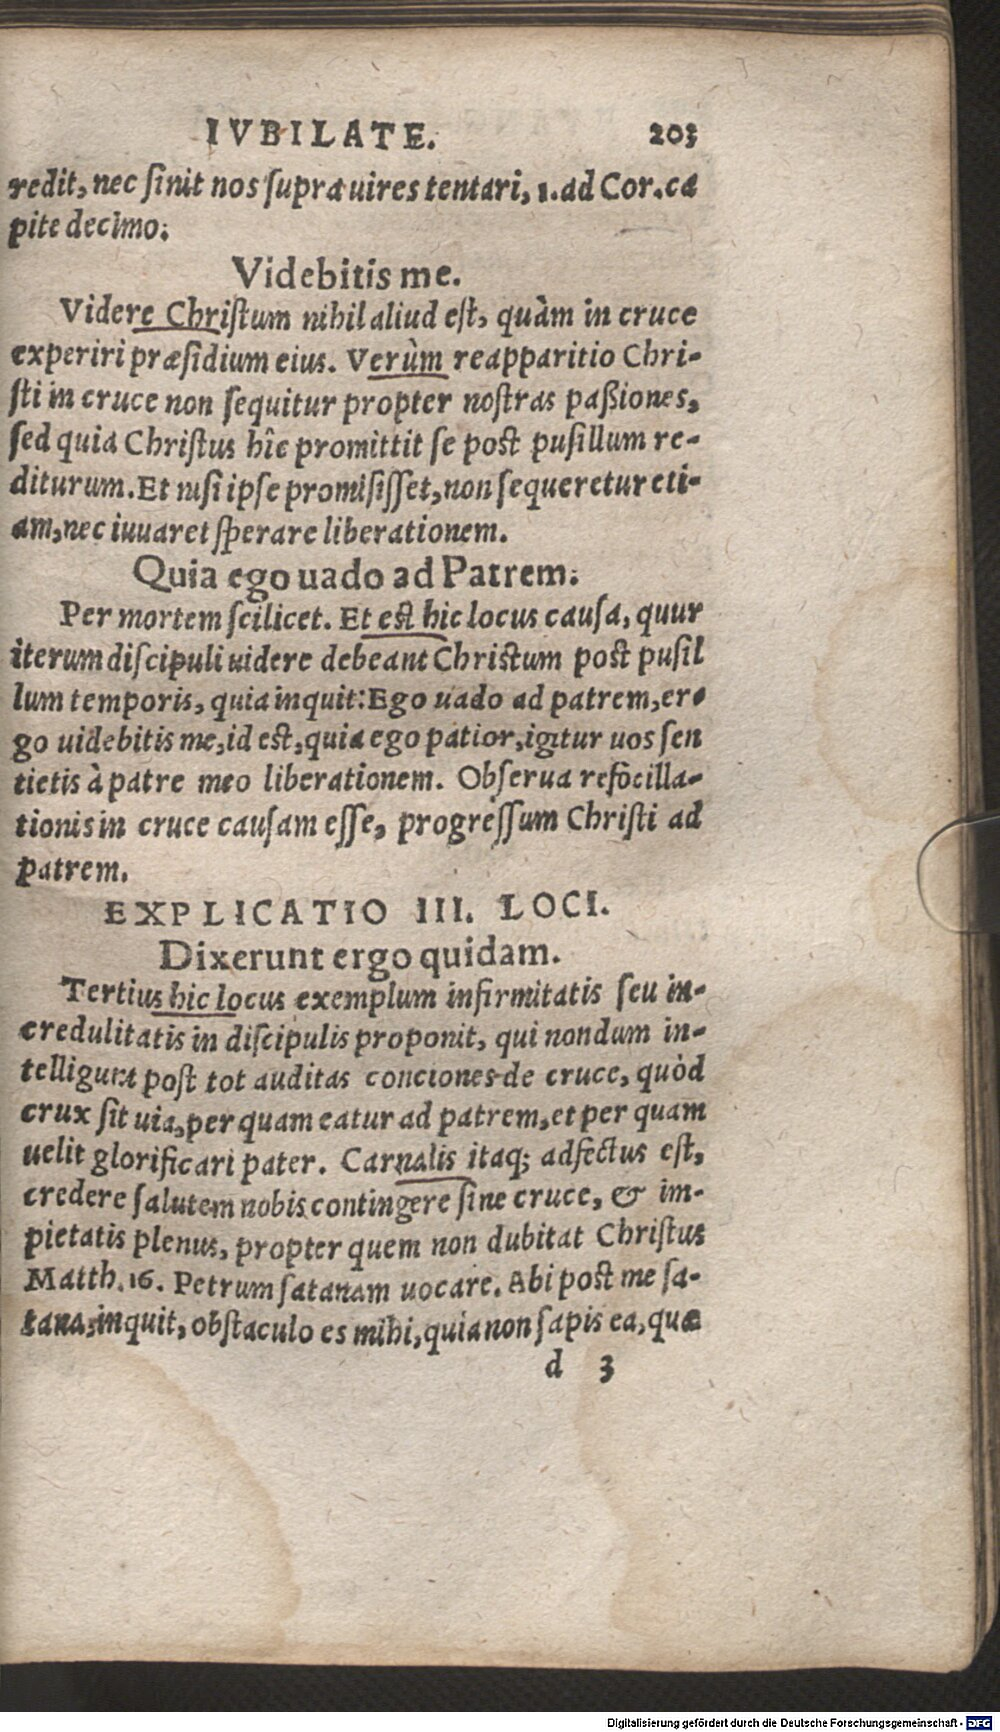 IVBILATE. 203
redit, nec ſinit nos ſupra uires tentari, 1. ad Cor. ca
pite decimo.
Videbitis me.
Videre Chriſtum nihil aliud eſt, quàm in cruce
experiri præſidium eius. Verùm reapparitio Chri-
ſti in cruce non ſequitur propter noſtras paßiones,
ſed quia Chriſtus hîc promittit ſe poſt puſillum re-
diturum. Et niſi ipſe promiſiſſet, non ſequeretur eti-
am, nec iuuaret ſperare liberationem.
Quia ego uado ad Patrem.
Per mortem ſcilicet. Et eſt hic locus cauſa, quur
iterum diſcipuli uidere debeant Chriſtum poſt puſil
lum temporis, quia inquit: Ego uado ad patrem, er-
go uidebitis me, id eſt, quia ego patior, igitur uos ſen
tietis à patre meo liberationem. Obſerua refocilla-
tionis in cruce cauſam eſſe, progreſſum Chriſti ad
patrem.
EXPLICATIO III. LOCI.
Dixerunt ergo quidam.
Tertius hic locus exemplum infirmitatis ſeu in-
credulitatis in diſcipulis proponit, qui nondum in-
telligunt poſt tot auditas conciones de cruce, quòd
crux ſit uia, per quam eatur ad patrem, et per quam
uelit glorificari pater. Carnalis itaq; adfectus eſt,
credere ſalutem nobis contingere ſine cruce, & im-
pietatis plenus, propter quem non dubitat Chriſtus
Matth. 16. Petrum ſatanam uocare. Abi poſt me ſa-
tana, inquit, obſtaculo es mihi, quia non ſapis ea, quæ
d 3
Digitalisierung gefördert durch die Deutsche Forschungsgemeinschaft - DFG